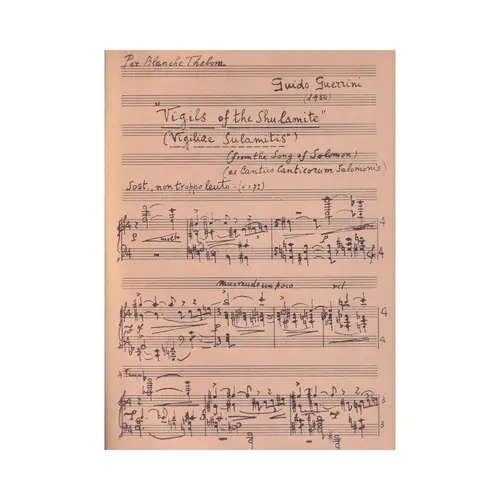 Per Blanche Thebom
Guido Guerrini
(1954)
"Vigils of the Shulamite"
(Vigiliae Sulamitis")
(from the Song of Solomon)
(ex Cantico Canticorum Salomonis)
Sost., non troppo lento. ( = 72)
molto
muovendo un poco
rit.
A Tempo